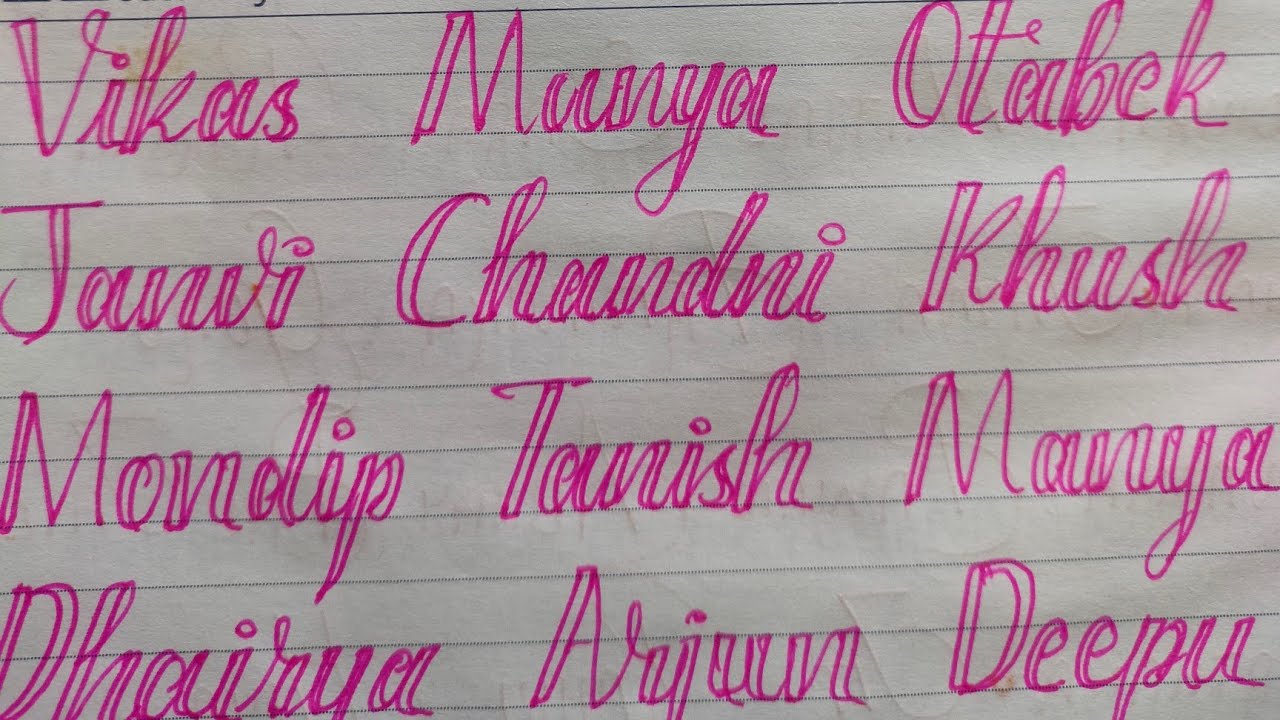 Vikas Manya Otabek
Janvi Chandni Khush
Mondip Tanish Manya
Dhairya Arjun Deepu